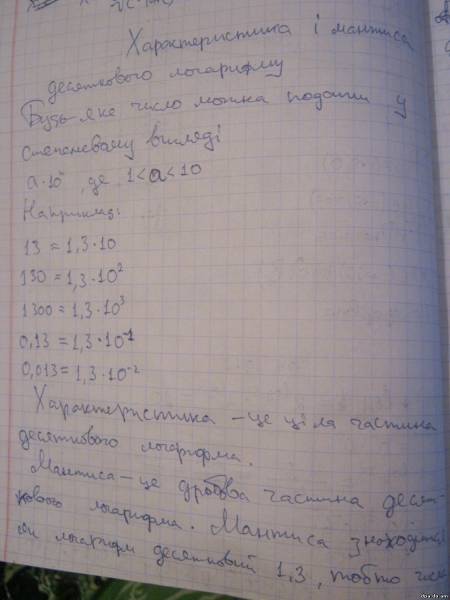 Характеристика і мантиса
десяткового логарифму
Будь-яке число можна подати у
степеневому вигляді
a·10ⁿ, де 1<a<10
Наприклад:
13 = 1,3·10
130 = 1,3·10²
1300 = 1,3·10³
0,13 = 1,3·10⁻¹
0,013 = 1,3·10⁻²
Характеристика – це ціла частина
десяткового логарифма.
Мантиса – це дробова частина десят-
кового логарифма. Мантиса знаходиться
логарифм десятковий 1,3, тобто
dpa-da.am